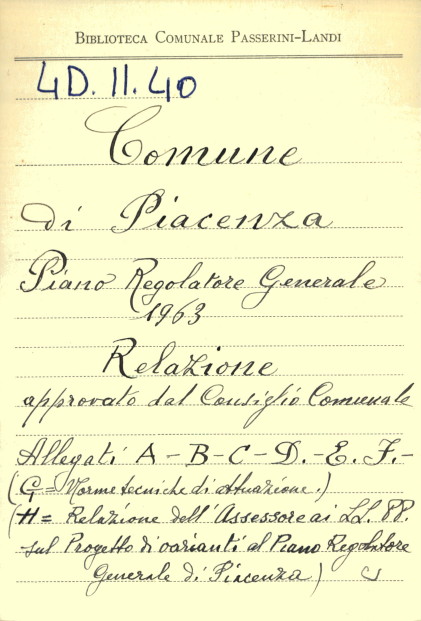 BIBLIOTECA COMUNALE PASSERINI-LANDI
4D.II.40
Comune
di Piacenza
Piano Regolatore Generale
1963
Relazione
approvato dal Consiglio Comunale
Allegati A - B - C - D. - E. F. -
(G = Norme tecniche di attuazione.)
(H = Relazione dell'Assessore ai LL. PP.
sul Progetto di varianti al Piano Regolatore
Generale di Piacenza)